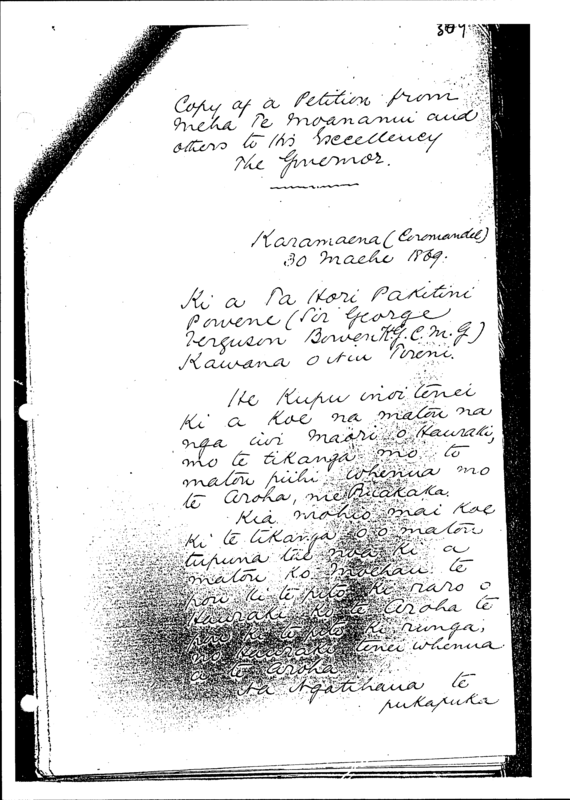 309
Copy of a Petition from
Meha Te Moananui and
others to His Excellency
The Governor.
Karamaena (Coromandel)
30 Maehe 1869.
Ki a Ta Hori Pakitini
Powene (Sir George
Ferguson Bowen K.G.C.M.G)
Kawana o Niu Tireni.
He Kupu inoi tenei
Ki a Koe na matou na
nga iwi Maori o Hauraki,
mo te tikanga mo to
matou piihi whenua mo
te Aroha, me Ruakaka.
Kia mohio mai Koe
Ki te tikanga o o matou
tupuna tae noa ki a
matou Ko Moehau te
pou ki te pito ki raro o
Hauraki Ko te Aroha te
pou ki te pito ki runga,
no Hauraki tenei whenua
a te Aroha
Na Ngatihaua te
pukapuka